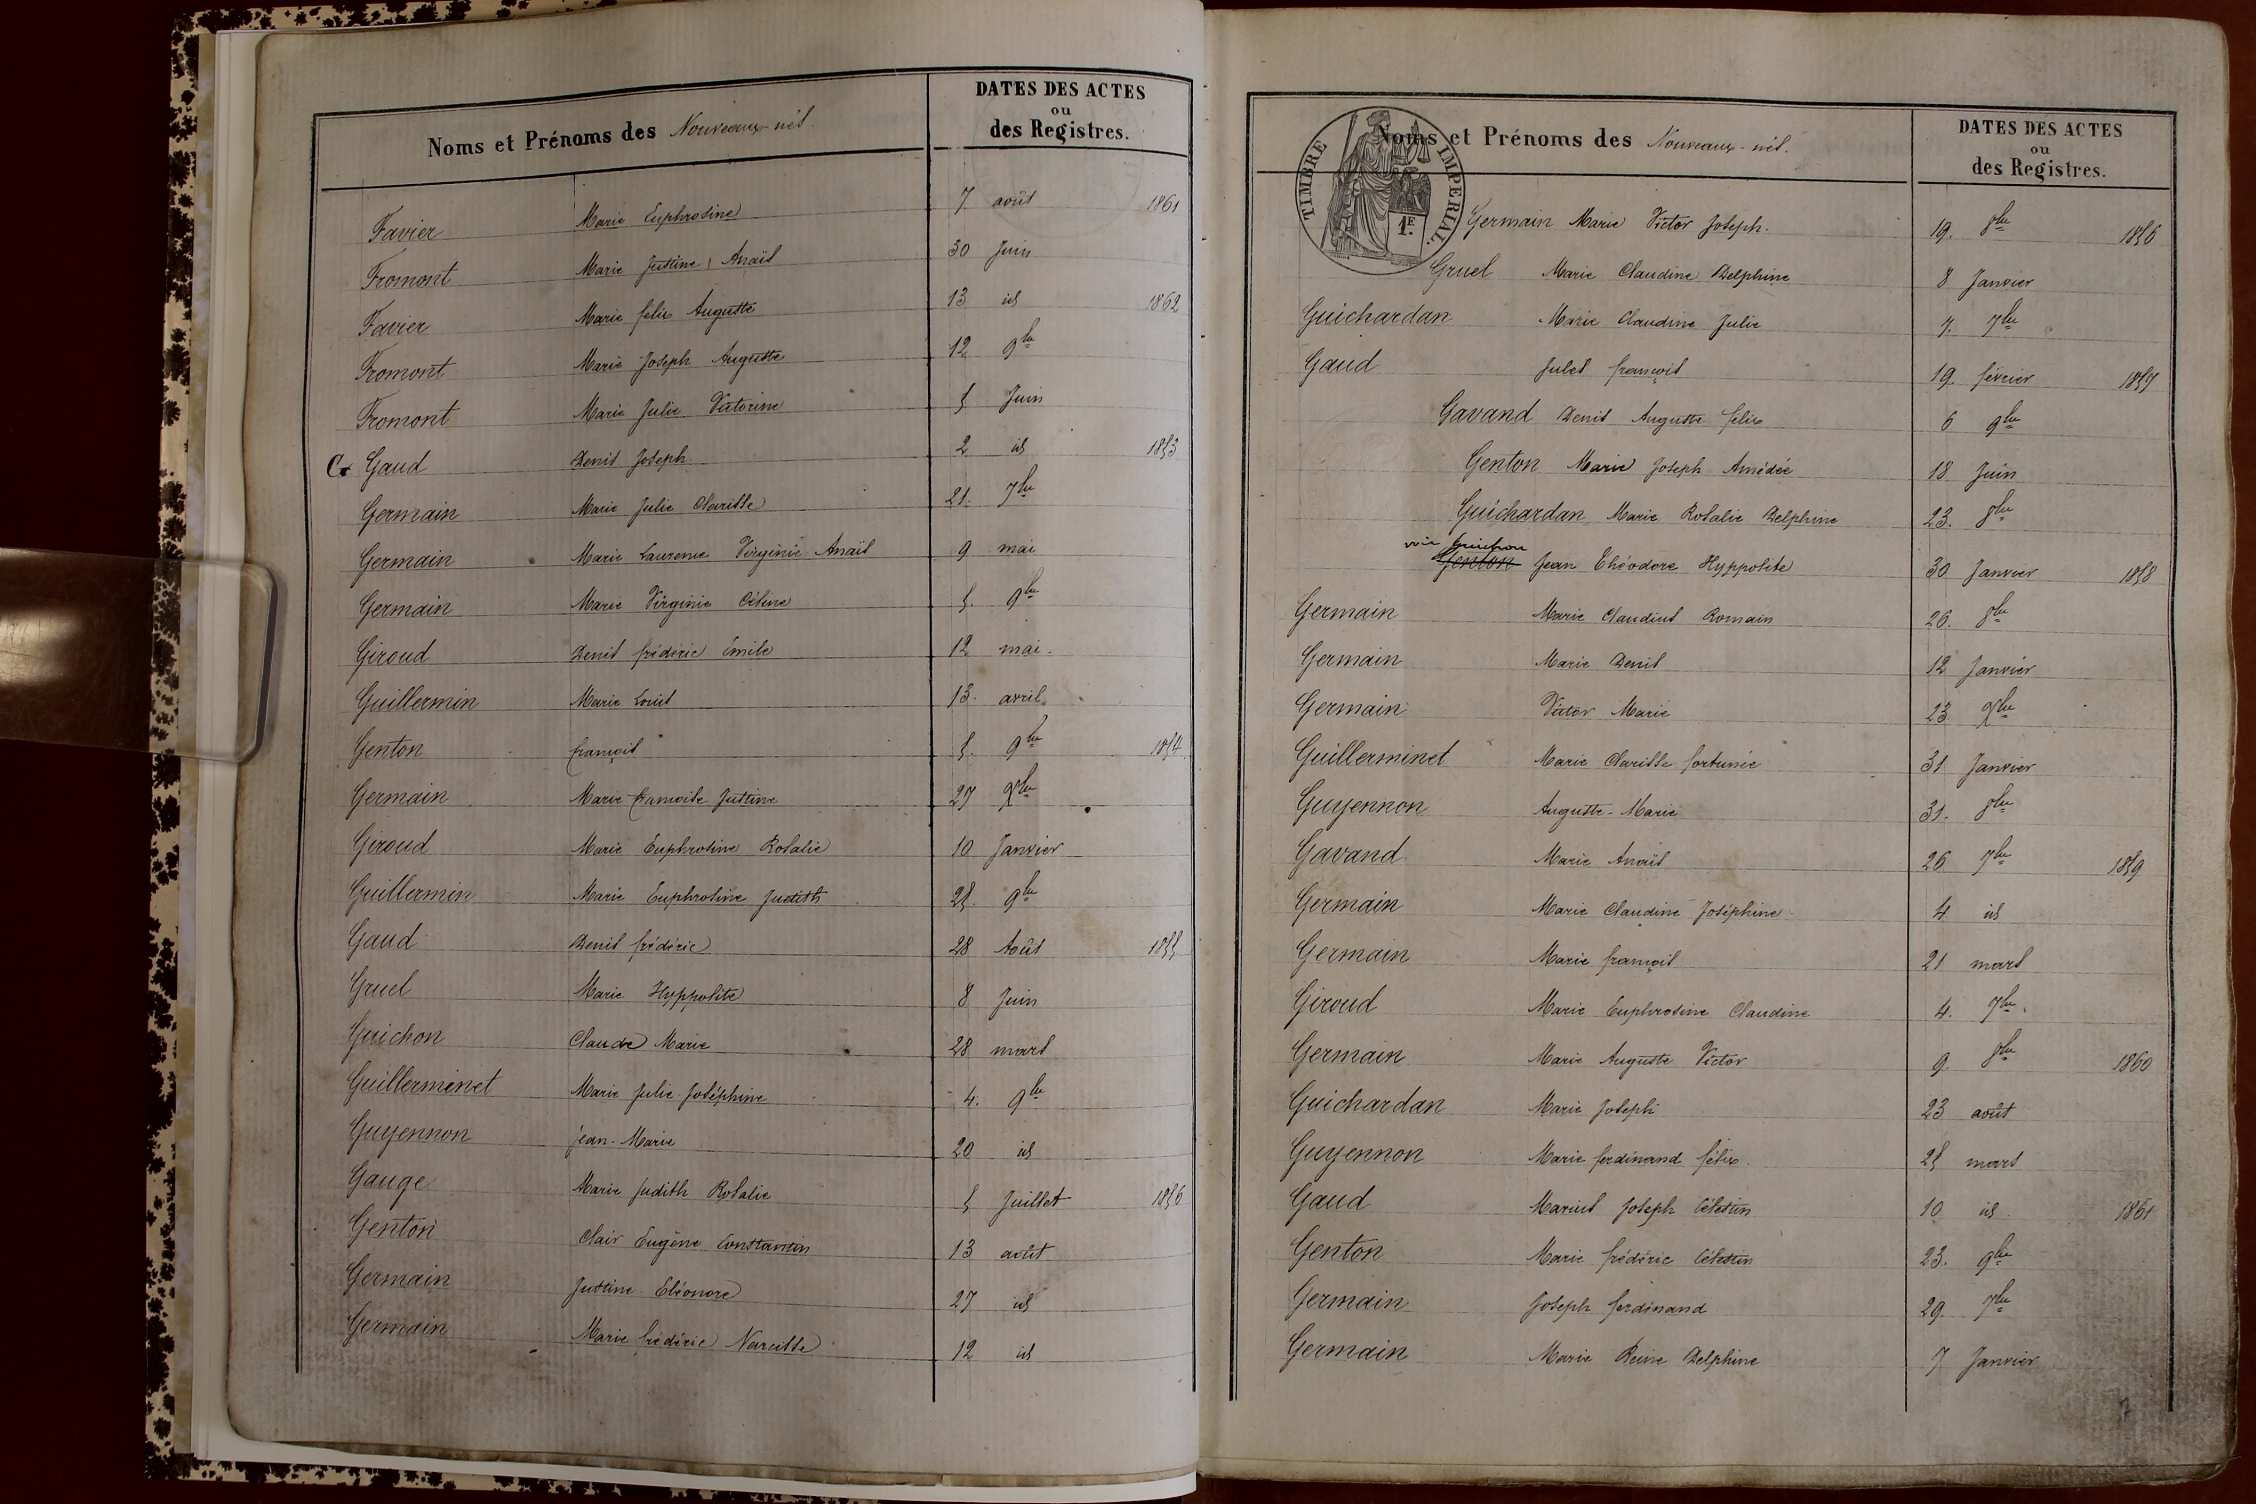 Noms et Prénoms des Nouveaux-nés.
DATES DES ACTES
ou
des Registres.
Favier Marie Euphrosine 7 août 1861
Fromont Marie Justine Anaïs 30 Juin
Favier Marie félix Auguste 13 id 1862
Fromont Marie Joseph Auguste 12 9bre
Fromont Marie Julie Victorine 5 Juin
G Gaud Denis Joseph 2 id 1853
Germain Marie Julie Clarisse 21. 7bre
Germain Marie Laurence Virginie Anaïs 9 mai
Germain Marie Virginie Céline 5. 9bre
Giroud Denis fréderic Emile 12 mai.
Guillermin Marie Louis 13. avril.
Genton françois 5. 9bre 1854
Germain Marie françoise Justine 27 Xbre
Giroud Marie Euphrosine Rosalie 10 Janvier
Guillermin Marie Euphrosine Judith 25. 9bre
Gaud Denis frédéric 28 Août 1855
Gruel Marie Hyppolite 8 Juin
Guichon Claude Marie 28 mars
Guillerminet Marie Julie Joséphine 4. 9bre
Guyennon Jean-Marie 20 id
Gauge Marie Judith Rosalie 5 Juillet 1856
Genton Clair Eugène Constantin 13 août
Germain Justine Eléonore 27 id
Germain Marie frédéric Narcisse 12 id
TIMBRE IMPERIAL.
1E.
Noms et Prénoms des Nouveaux-nés.
DATES DES ACTES
ou
des Registres.
Germain Marie Victor Joseph. 19. 8bre 1856
Gruel Marie Claudine Delphine 8 Janvier
Guichardan Marie Claudine Julie 7. 7bre
Gaud Jules françois 19. février 1857
Gavand Denis Auguste félix 6 9bre
Genton Marie Joseph Amédée 18 Juin
Guichardan Marie Rosalie Delphine 23. 8bre
voir Guichon
Genton Jean Théodore Hyppolite 30 Janvier 1858
Germain Marie Claudius Romain 26. 8bre
Germain Marie Denis 12 Janvier
Germain Victor Marie 23 Xbre
Guillerminet Marie Clarisse fortunée 31 Janvier
Guyennon Auguste-Marie 31. 8bre
Gavand Marie Anaïs 26 7bre 1859
Germain Marie Claudine Joséphine 4 id
Germain Marie françois 21 mars
Giroud Marie Euphrosine Claudine 4. 7bre.
Germain Marie Auguste Victor 9. 8bre 1860
Guichardan Marie Joseph 23 août
Guyennon Marie ferdinand félix. 25 mars
Gaud Marius Joseph Célestin 10 id 1861
Genton Marie frédéric Célestin 23. 9bre
Germain Joseph ferdinand 29. 7bre
Germain Marie Reine Delphine 7 Janvier